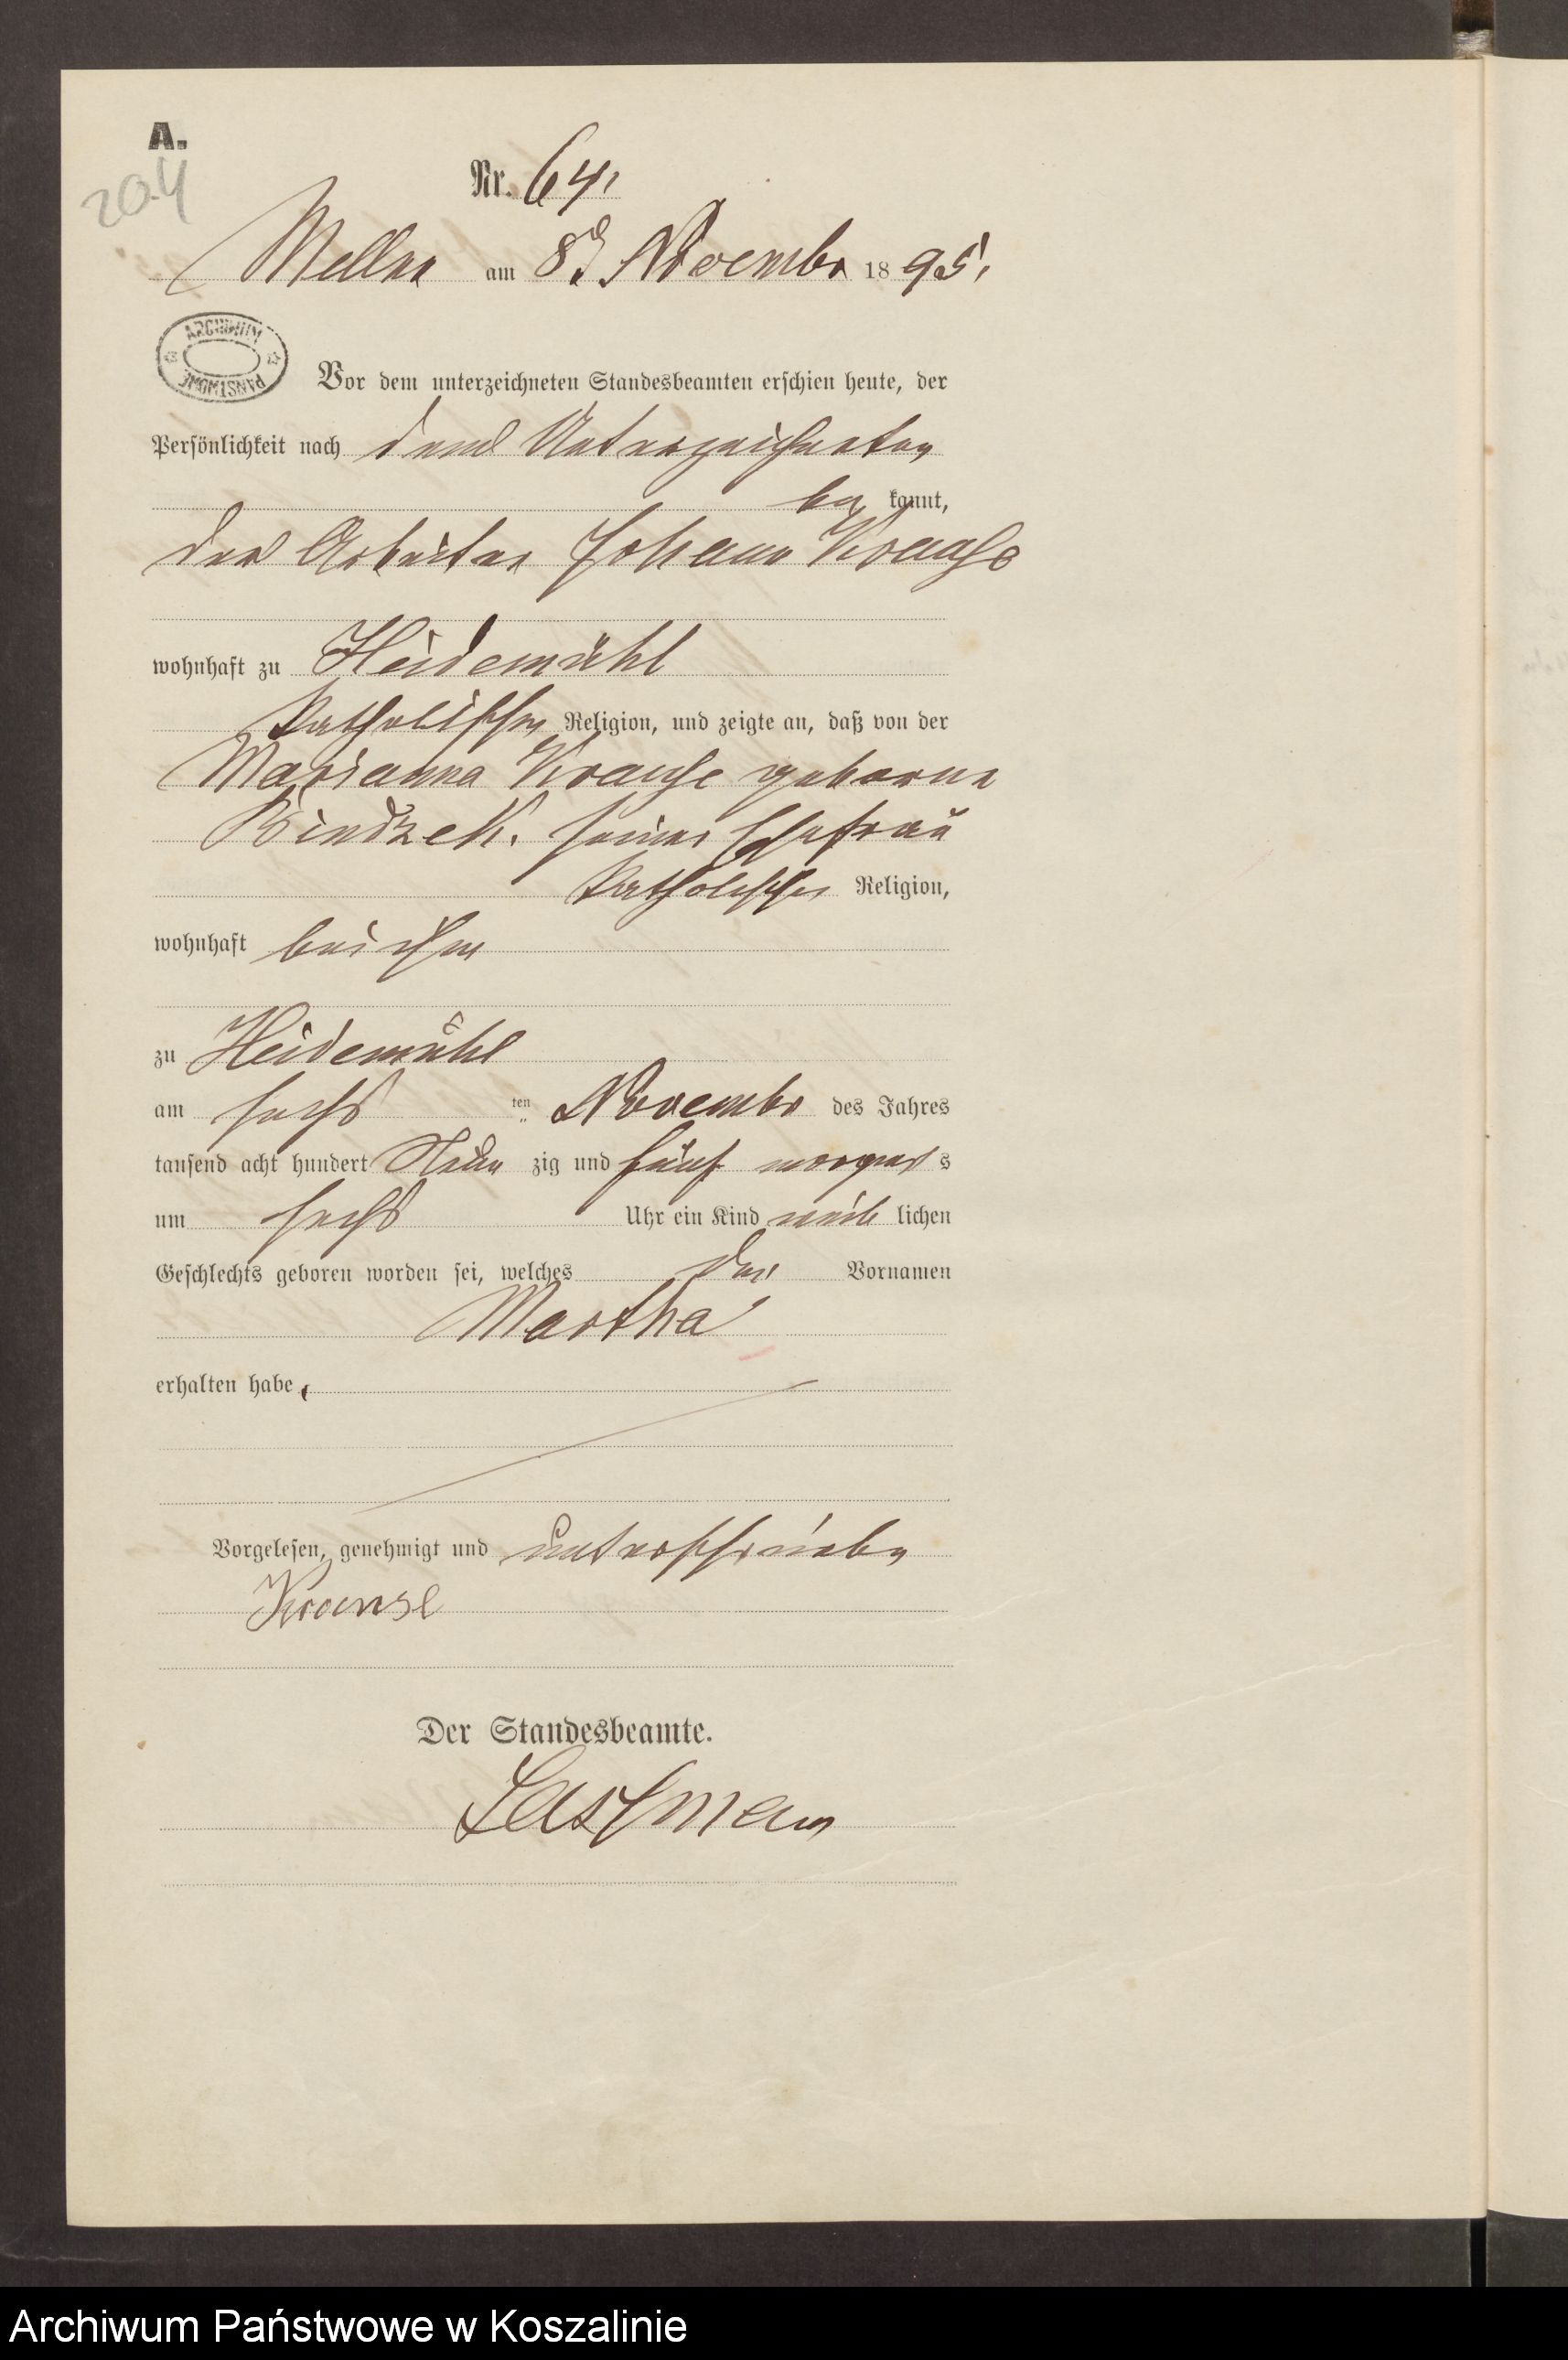 A.
204
Nr. 64.
Mellen am 8t November 1895.
ARCHIWUM
PAŃSTWOWE
Vor dem unterzeichneten Standesbeamten erschien heute, der
Persönlichkeit nach dem Unterzeichneten
be kannt,
der Arbeiter Johann Krause
wohnhaft zu Heidemühl
katholischen Religion, und zeigte an, daß von der
Marianna Krause geborene
seiner Ehefrau
katholischer Religion,
wohnhaft bei ihm
zu Heidemühl
am sechs ten November des Jahres
tausend acht hundert Neun zig und fünf morgens s
um sechs Uhr ein Kind weib lichen
Geschlechts geboren worden sei, welches den Vornamen
Martha
erhalten habe.
Vorgelesen, genehmigt und unterschrieben
Krause
Der Standesbeamte.
Archiwum Państwowe w Koszalinie